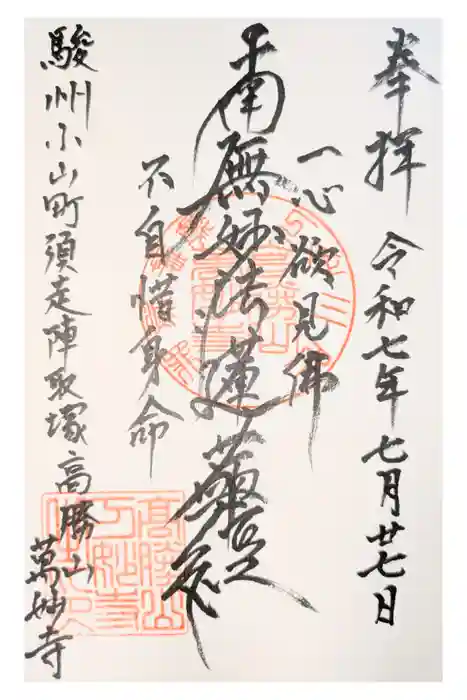 奉拝 令和七年七月廿七日
一心欲見佛
南無妙法蓮華経
不自惜身命
駿州小山町須走陣取塚高勝山
萬妙寺